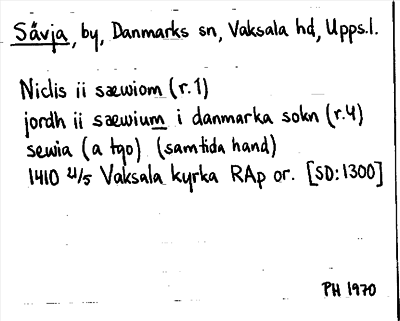 Sävja, by, Danmarks sn, Vaksala hd, Upps.l.
Niclis ii sæwiom (r.1)
jordh ii sæwium i danmarka sokn (r.4)
sewia (a tgo) (samtida hand)
1410 21/5 Vaksala kyrka RAp or. [SD:1300]
PH 1970